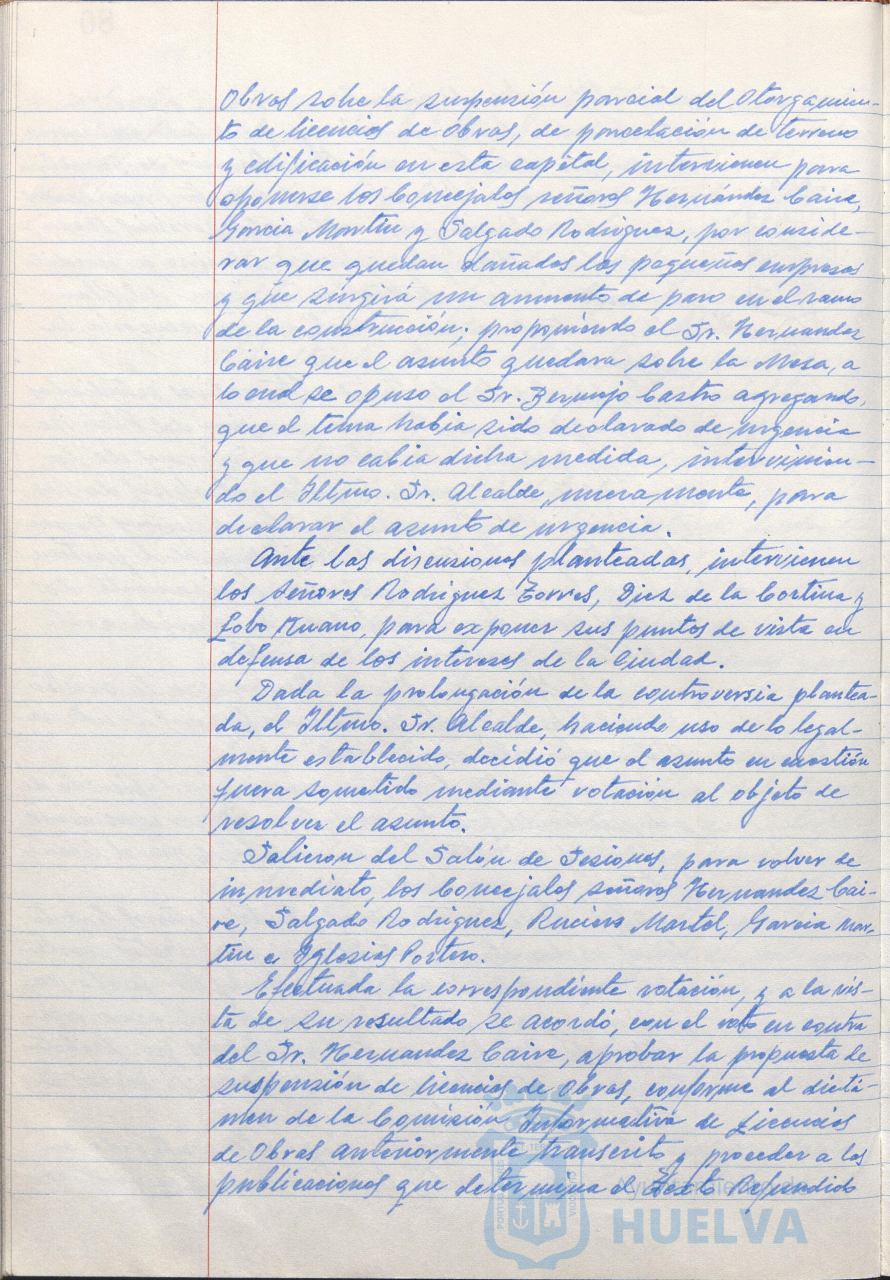 Obras sobre la suspensión parcial del Otorgamien-
to de licencias de Obras, de parcelación de terreno
y edificación en esta capital, intervienen para
oponerse los Concejales señores Hernández Caire,
García Martín y Salgado Rodríguez, por conside-
rar que quedan dañados las pequeñas empresas
y que surgirá un aumento de paro en el ramo
de la construcción; proponiendo el Sr. Hernandez
Caire que el asunto quedara sobre la Mesa, a
lo cual se opuso el Sr. Bermejo Castro agregando,
que el tema habia sido declarado de urgencia
y que no cabia dicha medida, intervinien-
do el Iltmo. Sr. Alcalde, nuevamente, para
declarar el asunto de urgencia.
Ante las discusiones planteadas, intervienen
los Señores Rodriguez Torres, Diez de la Cortina y
Lobo Ruano, para exponer sus puntos de vista en
defensa de los intereses de la Ciudad.
Dada la prolongación de la controversia plantea-
da, el Iltmo. Sr. Alcalde, haciendo uso de lo legal-
mente establecido, decidió que el asunto en cuestión
fuera sometido mediante votación al objeto de
resolver el asunto.
Salieron del Salón de Sesiones, para volver de
inmediato, los Concejales señores Hernandez Cai-
re, Salgado Rodriguez, Martel, Garcia Mar-
tin e Iglesias Portero.
Efectuada la correspondiente votación, y a la vis-
ta de su resultado se acordó, con el voto en contra
del Sr. Hernandez Caire, aprobar la propuesta de
suspensión de licencias de Obras, conforme al dictá-
men de la Comisión Informativa de Licencias
de Obras anteriormente transcrito y proceder a las
publicaciones que determina el Texto Refundido
HUELVA